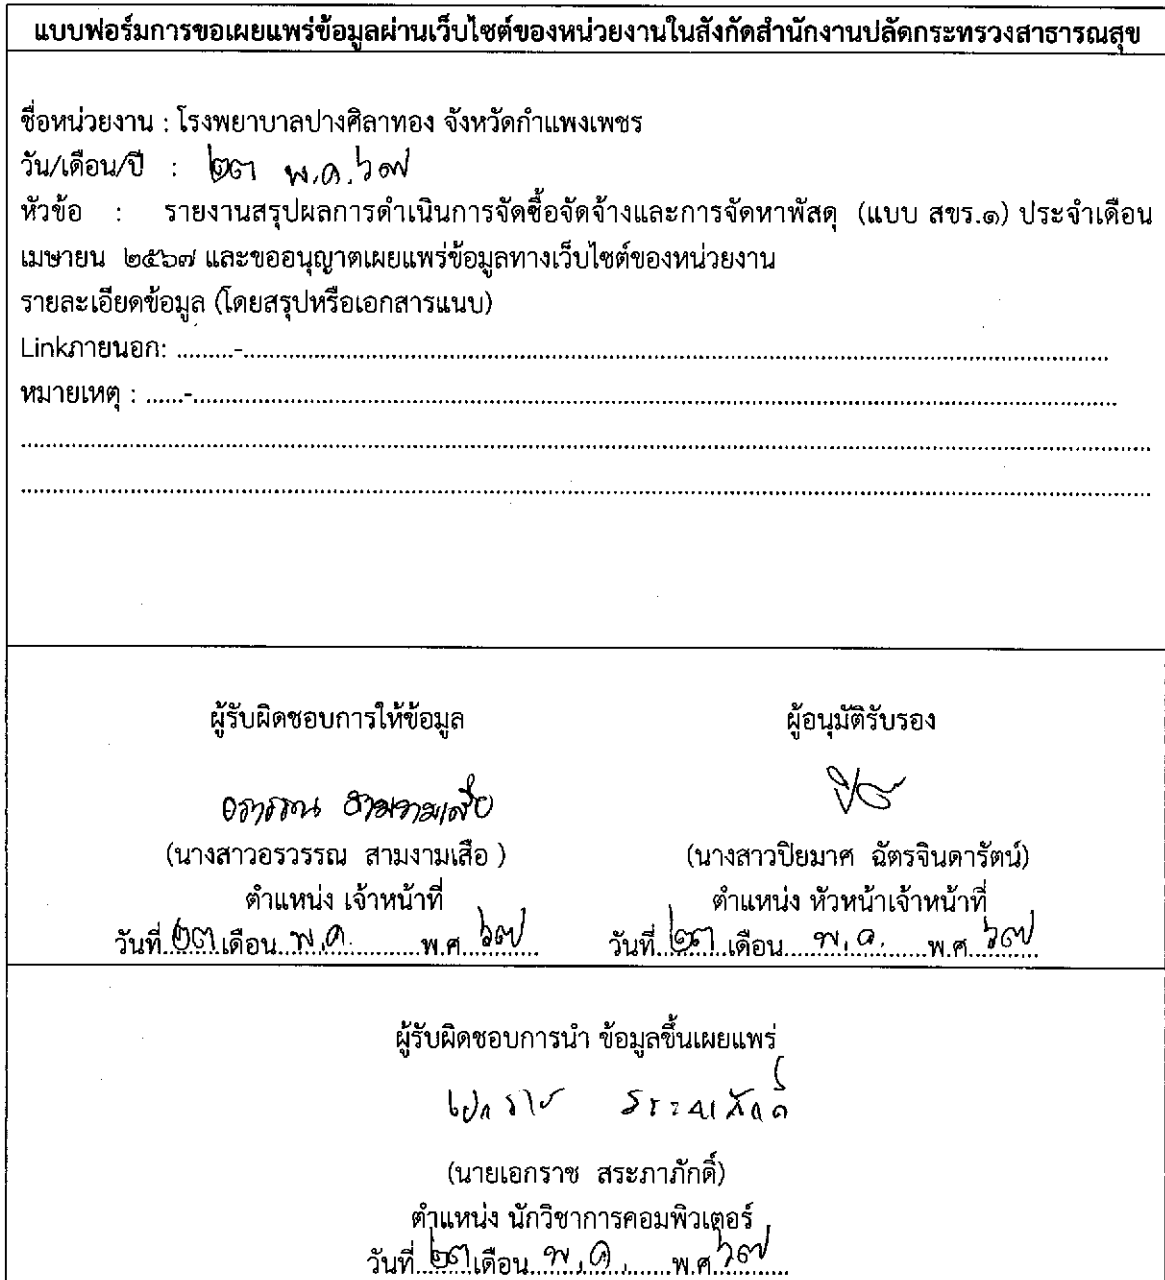 แบบฟอร์มการขอเผยแพร่ข้อมูลผ่านเว็บไซต์ของหน่วยงานในสังกัดสำนักงานปลัดกระทรวงสาธารณสุข
ชื่อหน่วยงาน : โรงพยาบาลปางศิลาทอง จังหวัดกำแพงเพชร
วัน/เดือน/ปี : ๒๓ พ.ค. ๖๗
หัวข้อ : รายงานสรุปผลการดำเนินการจัดซื้อจัดจ้างและการจัดหาพัสดุ (แบบ สขร.๑) ประจำเดือน
เมษายน ๒๕๖๗ และขออนุญาตเผยแพร่ข้อมูลทางเว็บไซต์ของหน่วยงาน
รายละเอียดข้อมูล (โดยสรุปหรือเอกสารแนบ)
Linkภายนอก: .........-.........
หมายเหตุ : ......-.........
ผู้รับผิดชอบการให้ข้อมูล ผู้อนุมัติรับรอง
อรวรรณ สามงามเสือ
(นางสาวอรวรรณ สามงามเสือ ) (นางสาวปิยมาศ ฉัตรจินดารัตน์)
ตำแหน่ง เจ้าหน้าที่ ตำแหน่ง หัวหน้าเจ้าหน้าที่
วันที่ ๒๓ เดือน พ.ค. พ.ศ. ๖๗ วันที่ ๒๓ เดือน พ.ค. พ.ศ. ๖๗
ผู้รับผิดชอบการนำ ข้อมูลขึ้นเผยแพร่
เอกราช สระภาภักดิ์
(นายเอกราช สระภาภักดิ์)
ตำแหน่ง นักวิชาการคอมพิวเตอร์
วันที่ ๒๓ เดือน พ.ค. พ.ศ. ๖๗